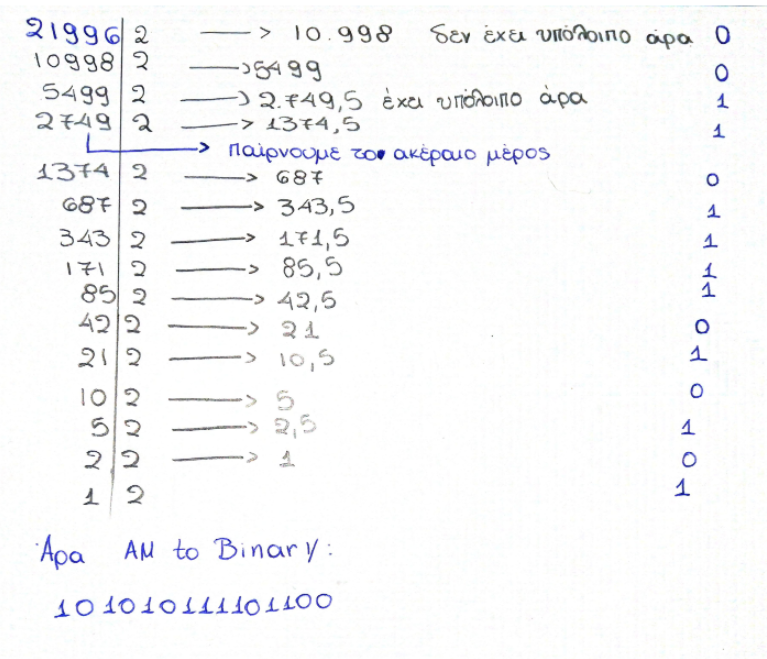 21996 2 —> 10.998 δεν έχει υπόλοιπο άρα 0
10998 2 —> 5499 0
5499 2 —> 2.749,5 έχει υπόλοιπο άρα 1
2749 2 —> 1374,5 1
—> παίρνουμε το ακέραιο μέρος
1374 2 —> 687 0
687 2 —> 343,5 1
343 2 —> 171,5 1
171 2 —> 85,5 1
85 2 —> 42,5 1
42 2 —> 21 0
21 2 —> 10,5 1
10 2 —> 5 0
5 2 —> 2,5 1
2 2 —> 1 0
1 2 1
Άρα AM to Binary:
101010111101100